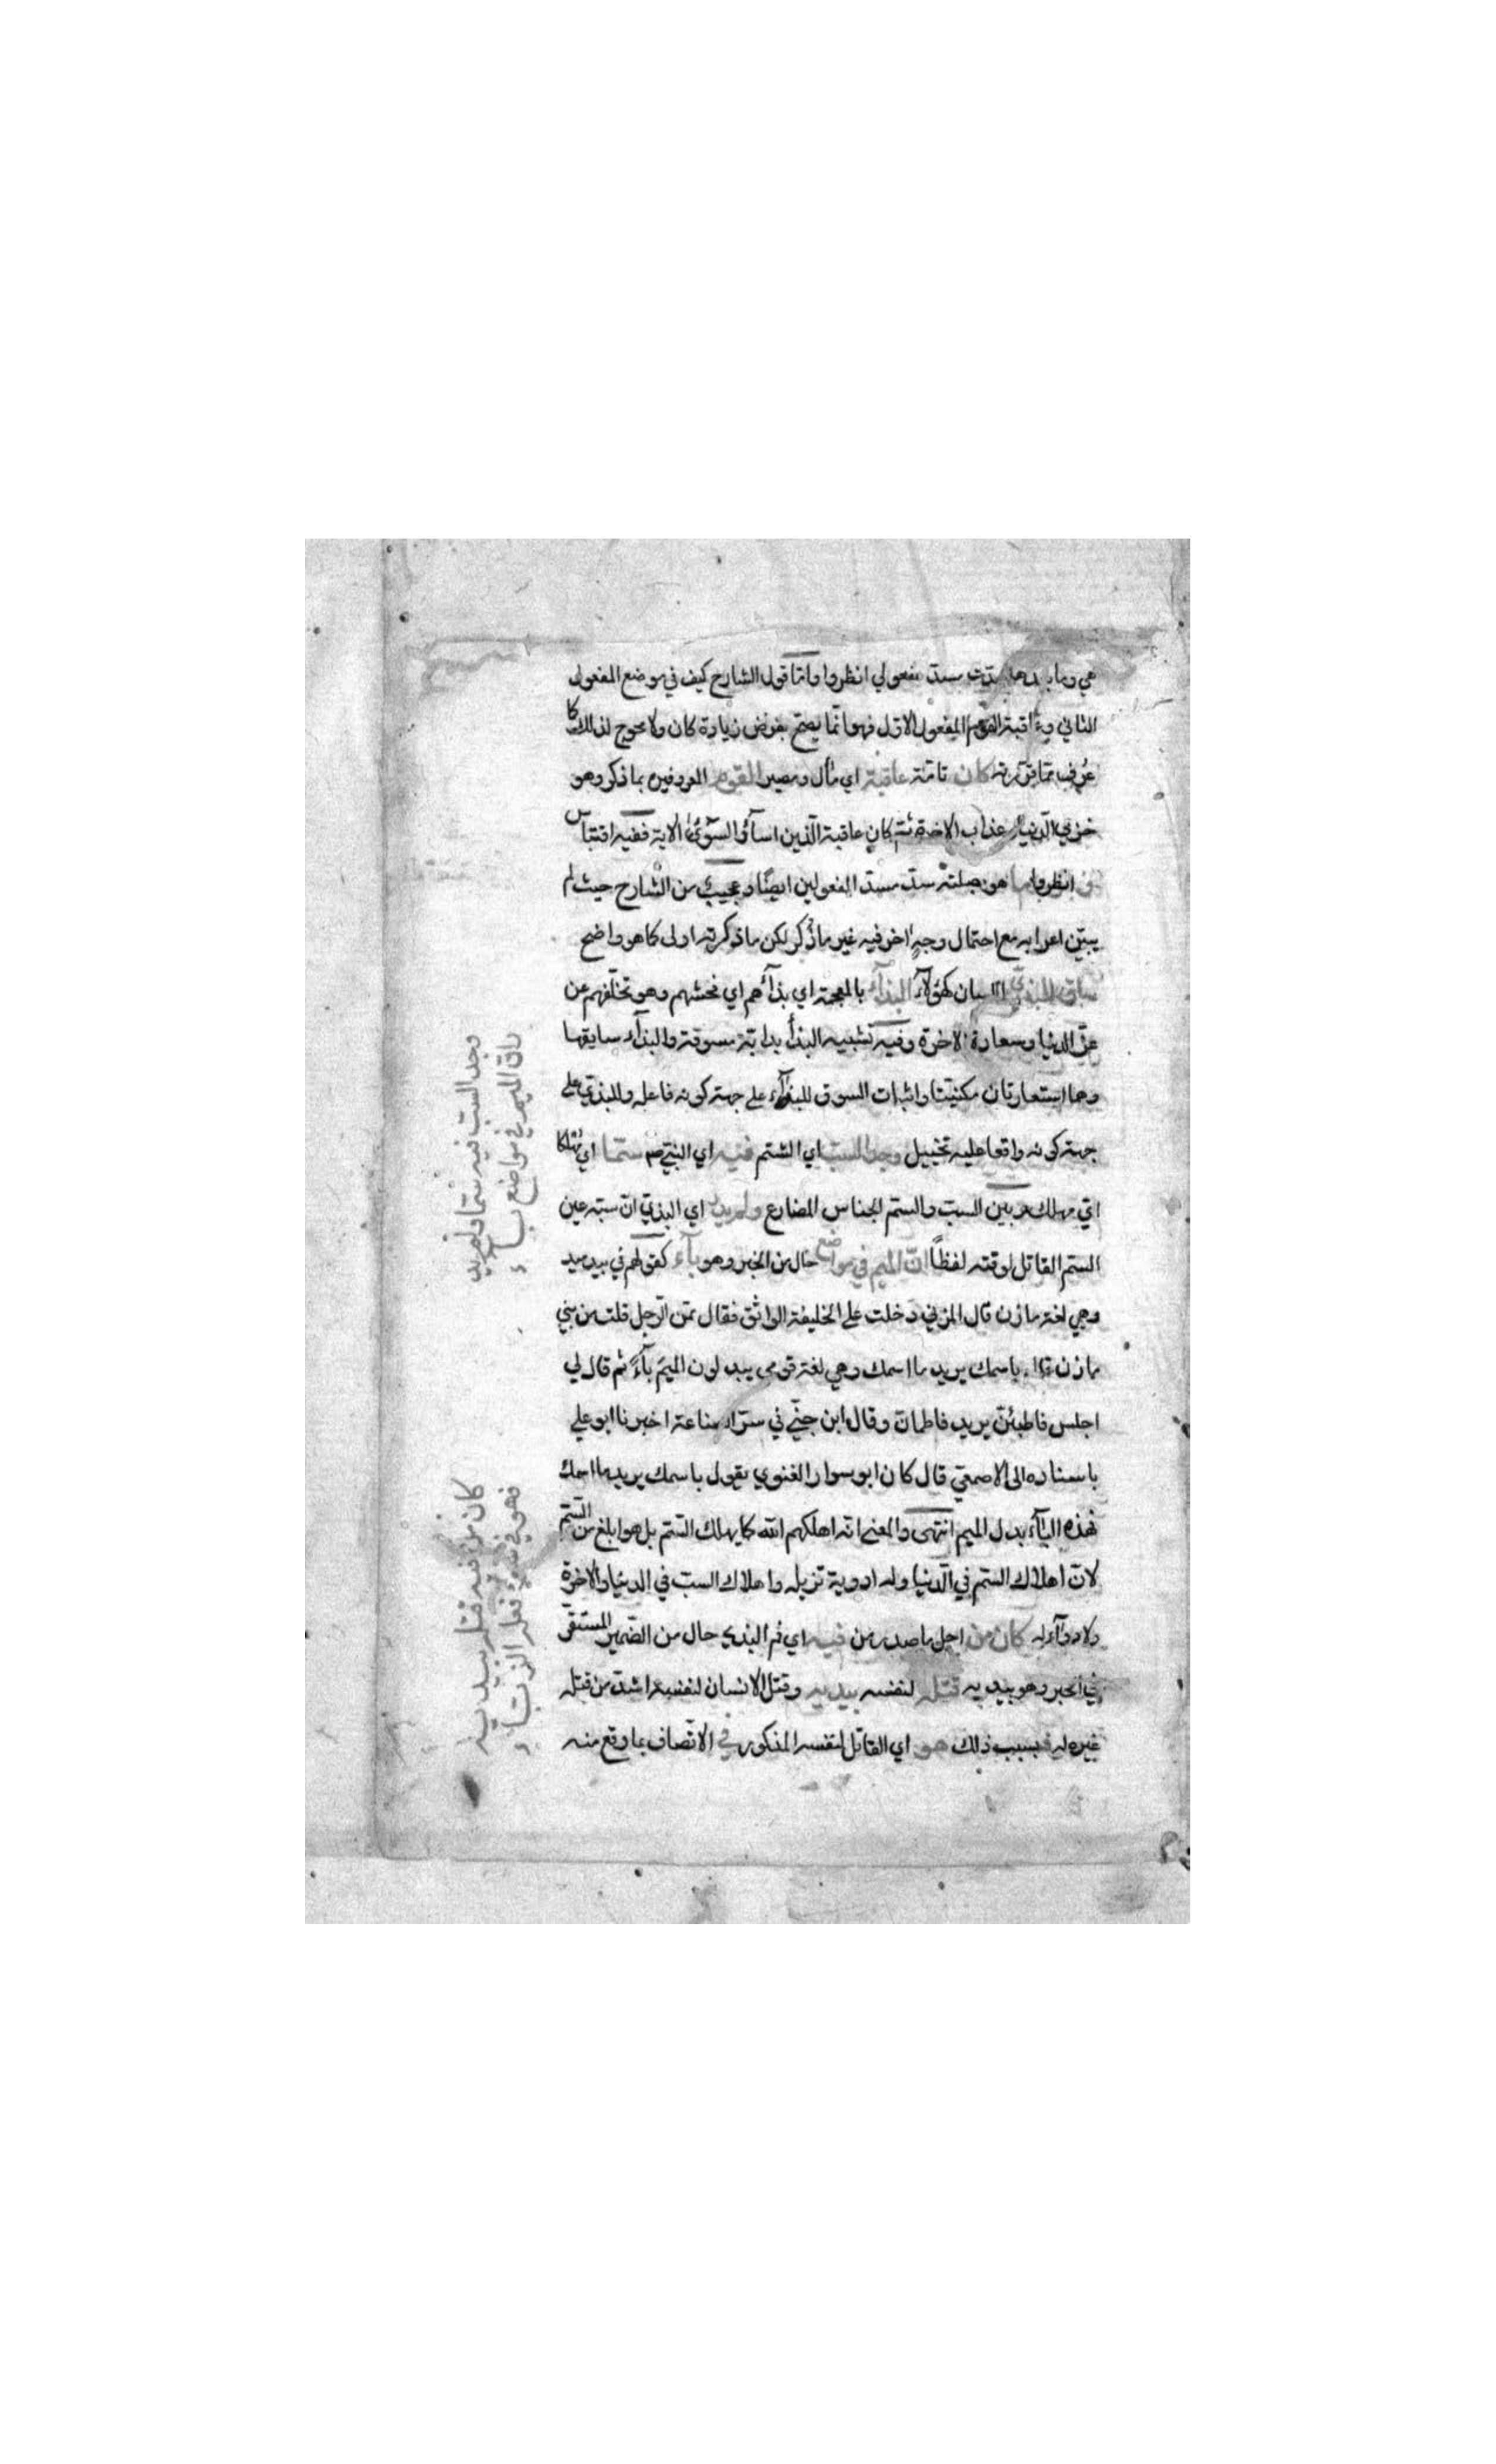 هي وما بعدها سدت مسد مفعولي انظروا واما قول الشارح كيف في موضع المفعول
الثاني وعاقبة القوم المفعول الاول فهو انما يصح بفرض زيادة كان ولا محوج لذلك كما
عرف مما قررته كان تامة عاقبة اي مآل ومصير القوم المعروفين بما ذكر وهو
خزي الدنيا وعذاب الاخرة ثم كان عاقبة الذين اساؤا السوئى الاية ففيه اقتباس
انظروا ما هو بصلته سد مسد المفعولين ايضا وعجيب من الشارح حيث لم
يبين اعرابه مع احتمال وجه اخر فيه غير ما ذكر لكن ما ذكرته اولى كما هو واضح
ساق للبذي اللسان كهؤلاء البذاء بالمعجمة اي بذاؤهم اي فحشهم وهو تخلفهم عن
عز الدنيا وسعادة الاخرة وفيه تشبيه البذئ بدابة مسوقة والبذاء سايقها
وهما استعارتان مكنيتان واثبات السوق للبذاء على جهة كونه فاعله وللبذي على
جهة كونه واقعا عليه تخييل وجد السب اي الشتم فيه اي النبي صم سما اي مهلكا
اي مهلك وبين السب والسم الجناس المضارع ولم يدر اي البذي ان سبه عين
السم القاتل لوقته لفظا ان الميم في مواضع حال من الخبر وهو باء كقولهم في بيد ميد
وهي لغة مازن قال المزني دخلت على الخليفة الواثق فقال ممن الرجل قلت من بني
مازن قال باسمك يريد ما اسمك وهي لغة قومي يبدلون الميم باء ثم قال لي
اجلس فاطبئن يريد فاطمان وقال ابن جني في سر الصناعة اخبرنا ابو علي
باسناده الى الاصمعي قال كان ابو سوار الغنوي يقول باسمك يريد ما اسمك
فهذه الباء بدل الميم انتهى والمعنى انه اهلكهم الله كما يهلك السم بل هو ابلغ من السم
لان اهلاك السم في الدنيا وله ادوية تزيله واهلاك السب في الدنيا والاخرة
ولا دواء له كان من اجل ما صدر من فيه اي فم البذي حال من الضمير المستقر
في الخبر وهو بيديه قتله لنفسه بيديه وقتل الانسان لنفسه اشد من قتله
غيره له فبسبب ذلك هو اي القاتل لنفسه المذكور في الاتصاف بما وقع منه
وجد السب فيه سما ولم يدر
ان الميم في مواضع باء
كان من فيه قتله بيديه
فهو في سوء فعله الزباء